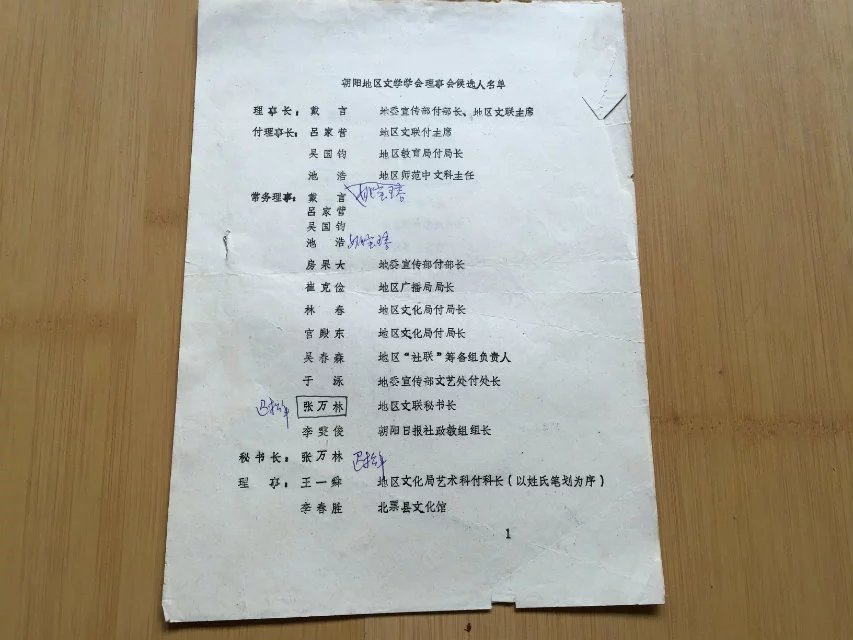 朝阳地区文学学会理事会候选人名单
理事长：戴 言 地委宣传部付部长、地区文联主席
付理事长：吕家营 地区文联付主席
吴国钧 地区教育局付局长
池 浩 地区师范中文科主任
常务理事：戴 言
吕家营
吴国钧
池 浩
房果大 地委宣传部付部长
崔克俭 地区广播局局长
林 春 地区文化局付局长
官殿东 地区文化局付局长
吴春森 地区“社联”筹备组负责人
于 泳 地委宣传部文艺处付处长
张万林 地区文联秘书长
李斐俊 朝阳日报社政教组组长
秘书长：张万林
理 事：王一舜 地区文化局艺术科付科长（以姓氏笔划为序）
李春胜 北票县文化馆
1